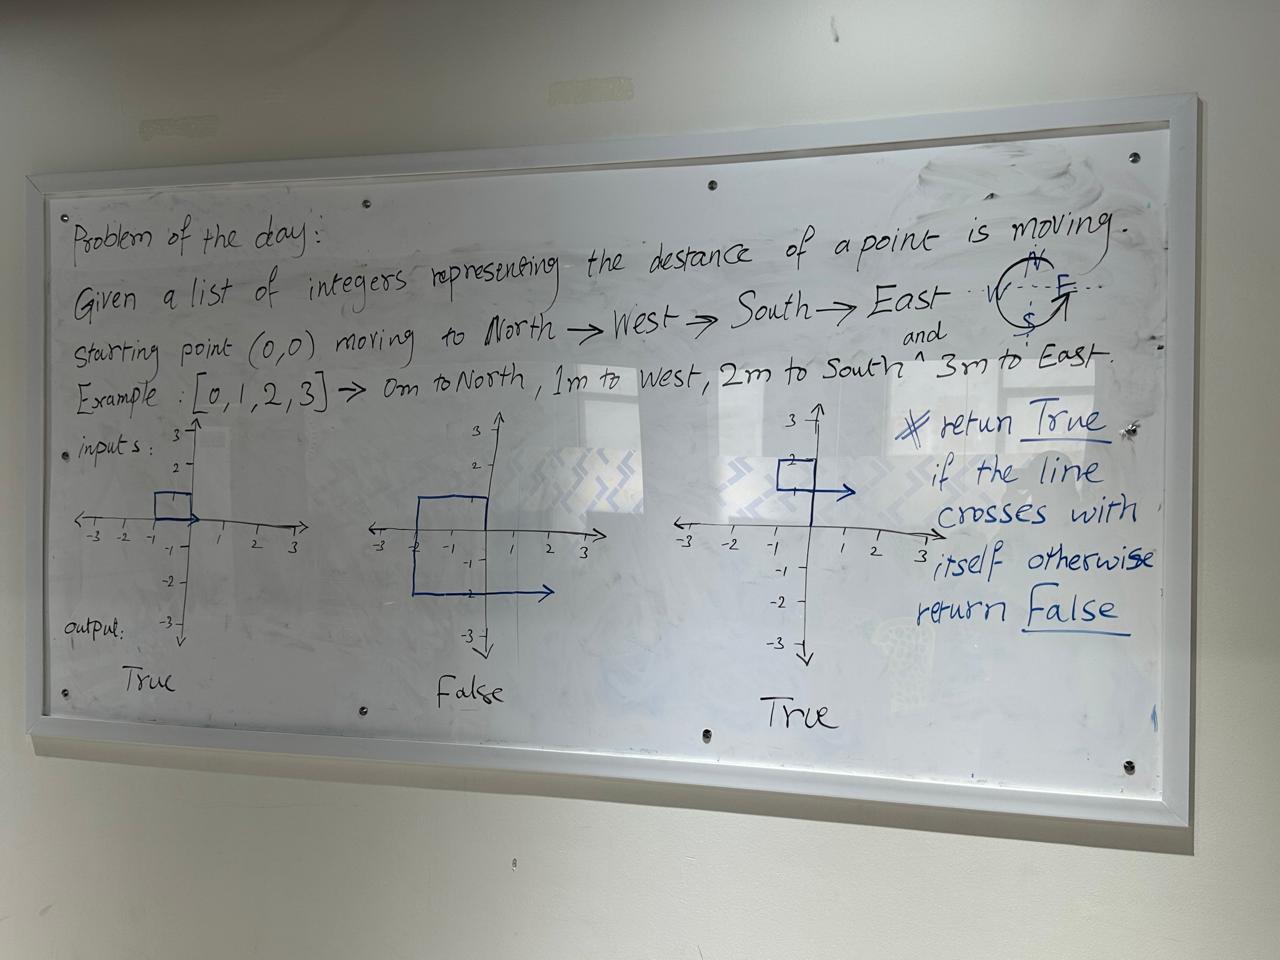 Problem of the day:
Given a list of integers representing the destance of a point is moving.
starting point (0,0) moving to North → West → South → East
N
W E
S
and
Example : [0,1,2,3] → 0m to North, 1m to West, 2m to South ^ 3m to East.
• inputs:
3
2
1
-3 -2 -1 1 2 3
-1
-2
-3
3
2
-3 -2 -1 1 2 3
-1
-2
-3
3
2
1
-3 -2 -1 1 2 3
-1
-2
-3
* return True
if the line
crosses with
itself otherwise
return False
output:
True
False
True